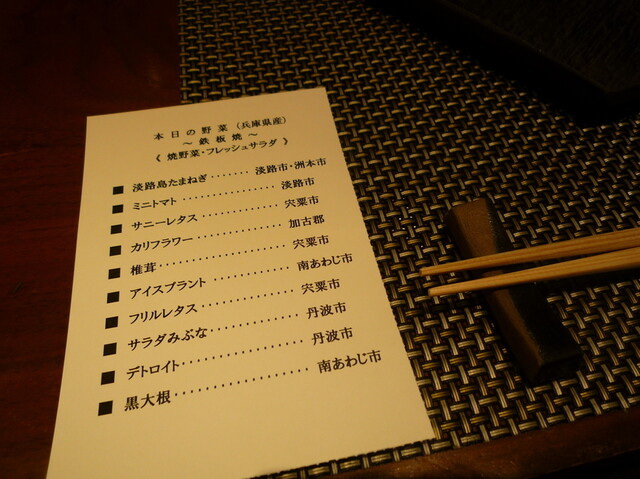 本日の野菜（兵庫県産）
～鉄板焼～
《焼野菜・フレッシュサラダ》
■ 淡路島たまねぎ・・・・・・・ 淡路市・洲本市
■ ミニトマト・・・・・・・・・・・・・・・ 淡路市
■ サニーレタス・・・・・・・・・・・・・ 宍粟市
■ カリフラワー・・・・・・・・・・・・・ 加古郡
■ 椎茸・・・・・・・・・・・・・・・・・・・・ 宍粟市
■ アイスプラント・・・・・・・・・・・・ 南あわじ市
■ フリルレタス・・・・・・・・・・・・・・ 宍粟市
■ サラダみぶな・・・・・・・・・・・・・ 丹波市
■ デトロイト・・・・・・・・・・・・・・・・・ 丹波市
■ 黒大根・・・・・・・・・・・・・・・・・・・ 南あわじ市